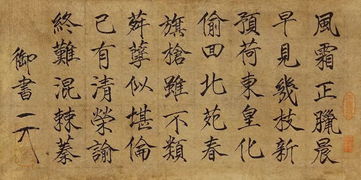 風霜正臘晨
早見幾枝新
預荷東皇化
偷囬北苑春
旗槍雖不類
荈蕚似堪倫
已有清榮諭
終難混棘蓁
御書